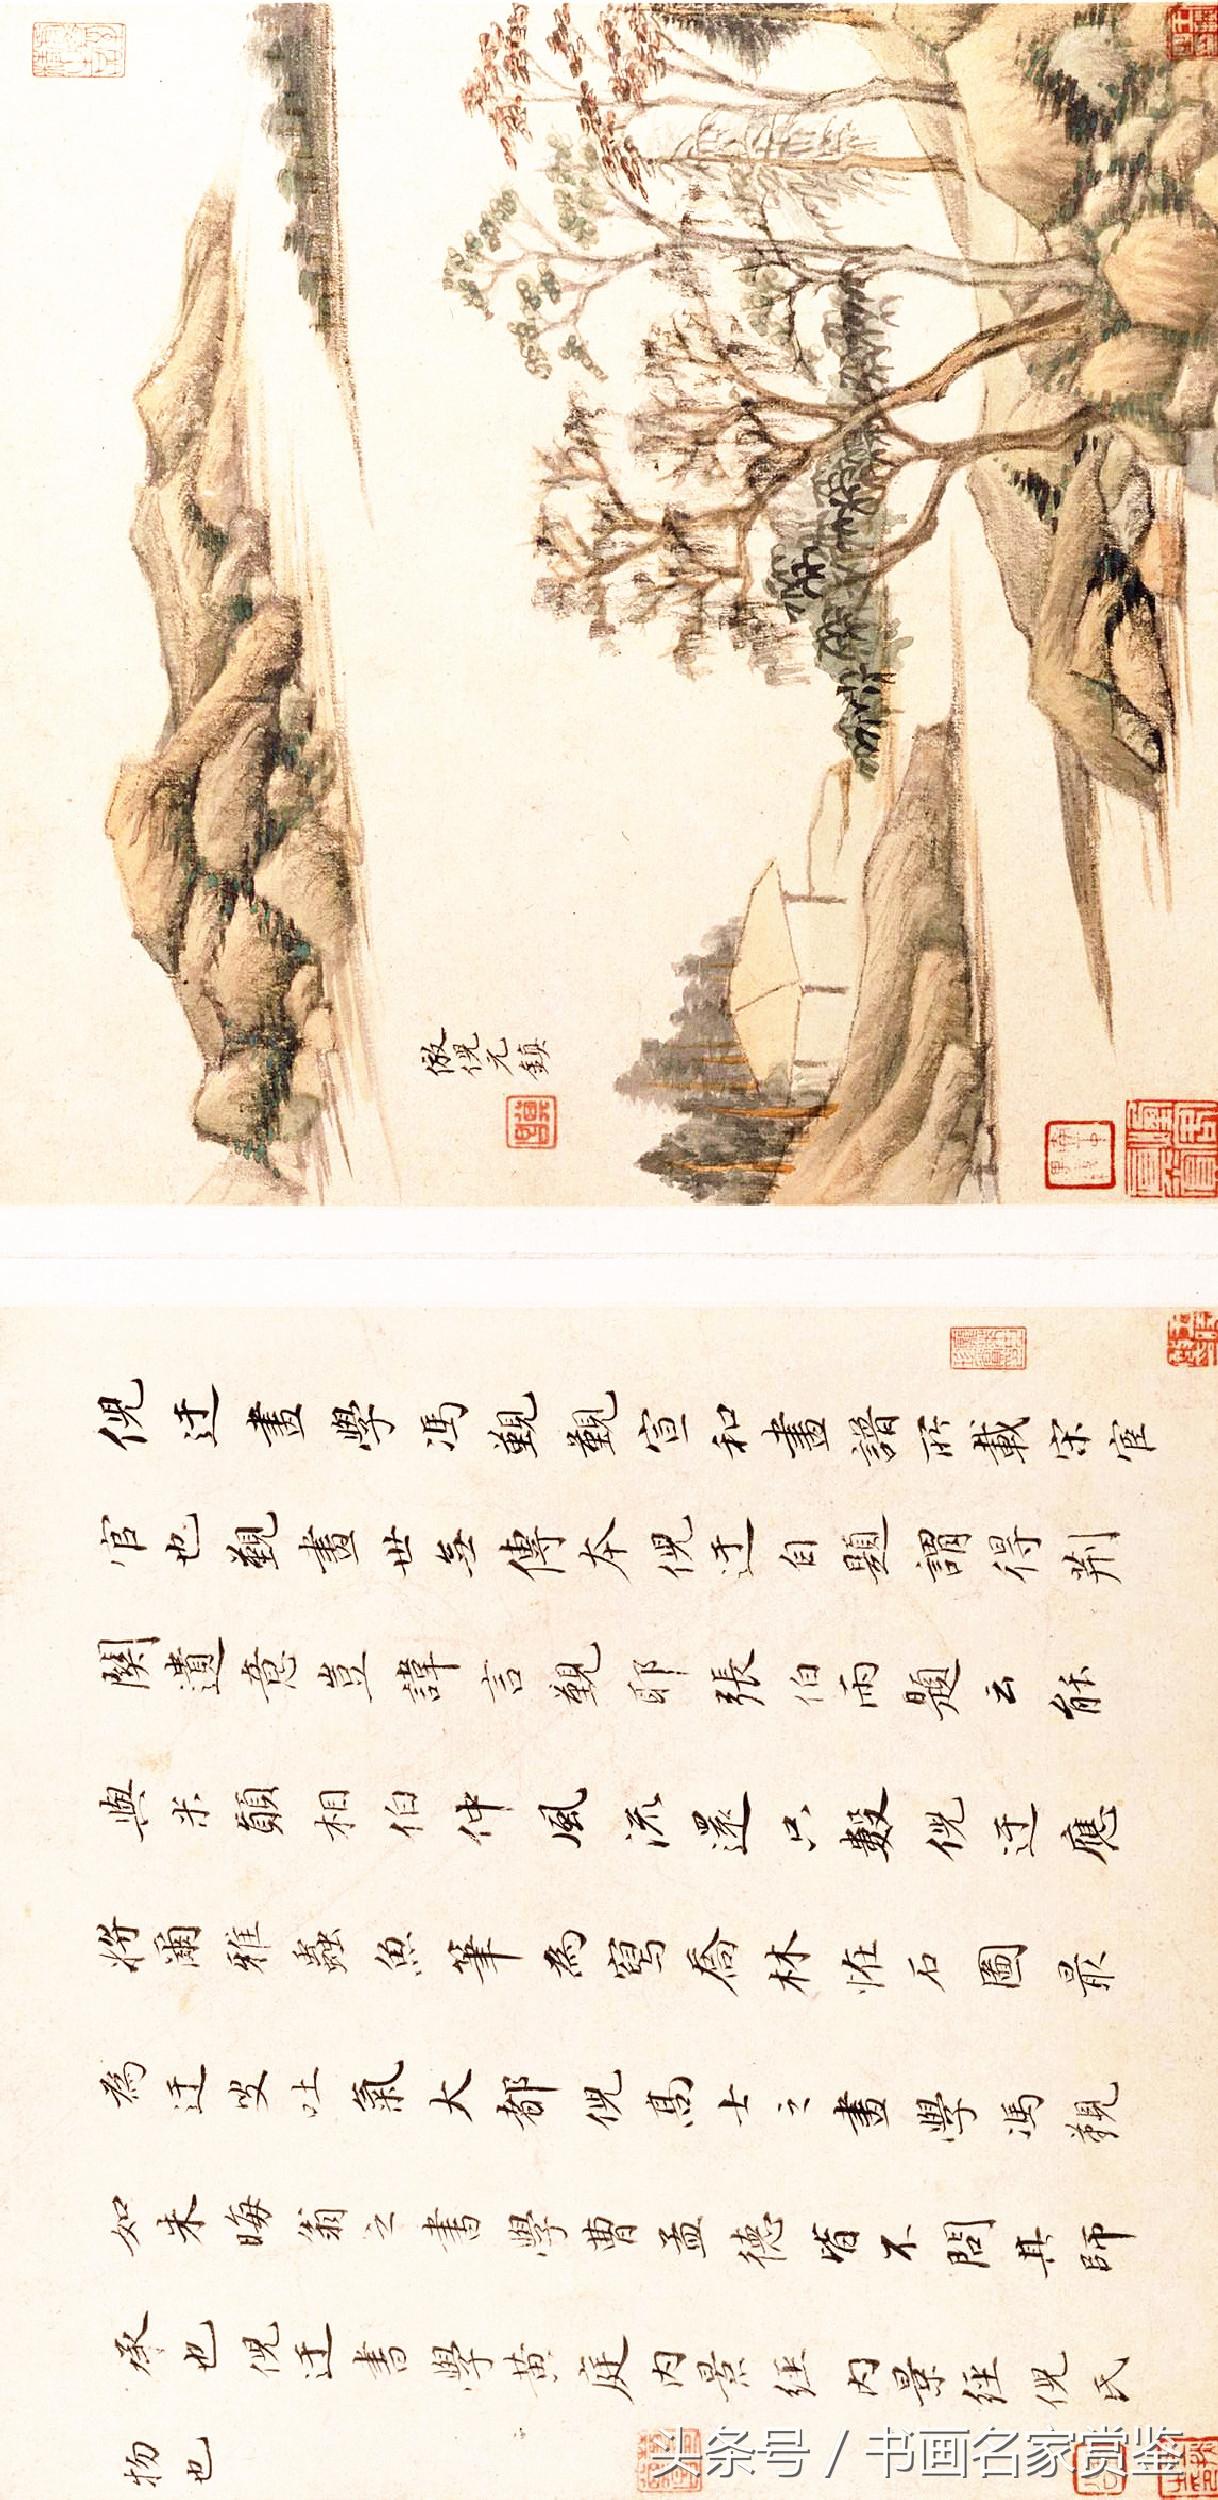 倣倪元鎮
倪迂畫學馮覲覲宣和畫譜所載宋宦
官也覲畫世無傳本倪迂自題謂得荊
關遺意豈諱言覲耶張伯雨題云䏻
與米顛相伯仲風流還只數倪迂應
將爾雅蟲魚筆為寫喬林恠石圖最
為迂叟吐氣大都倪高士之畫學馮覲
如朱晦翁之書學曹孟德皆不問其師
承也倪迂書學黃庭內景經內景經倪氏
物也
头条号 / 书画名家赏鉴